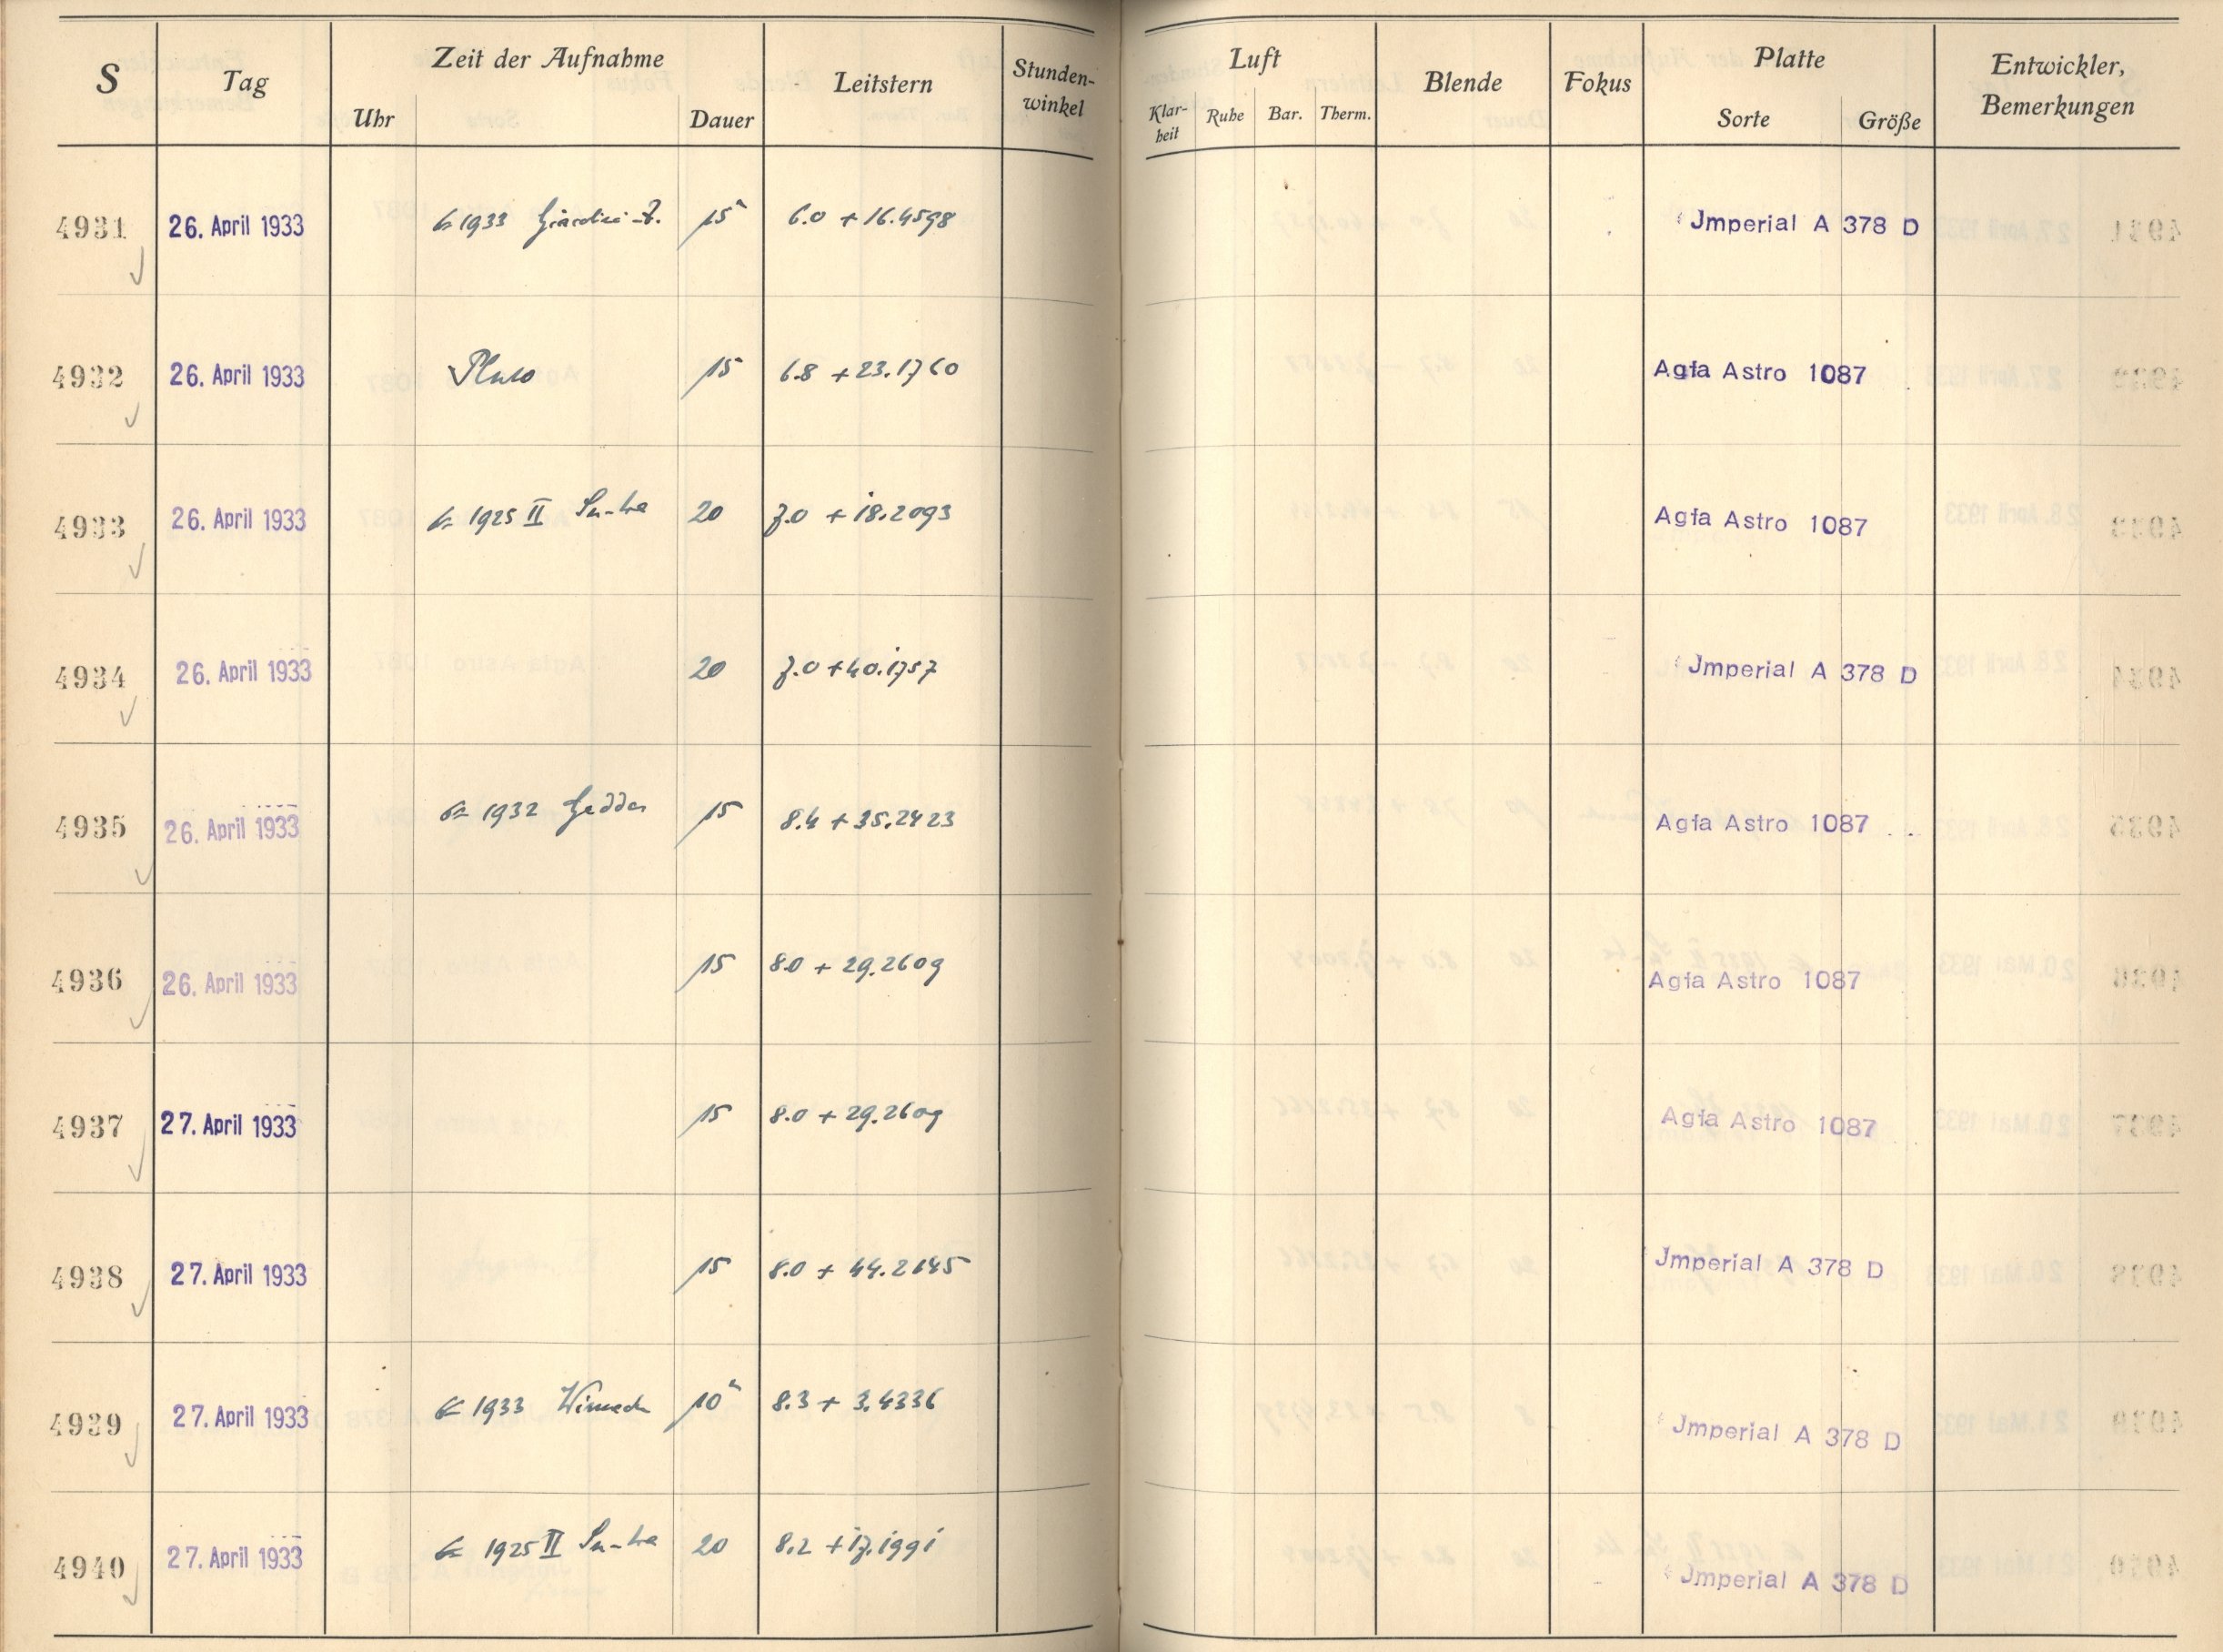 S Tag Zeit der Aufnahme Leitstern Stunden-winkel Luft Blende Fokus Platte Entwickler, Bemerkungen
Uhr Dauer Klar-heit Ruhe Bar. Therm. Sorte Größe
4931 26. April 1933 1933 15 6.0 + 16.4598 Jmperial A 378 D
4932 26. April 1933 Pluto 15 6.8 + 23.1760 Agfa Astro 1087
4933 26. April 1933 1925 II 20 7.0 + 18.2093 Agfa Astro 1087
4934 26. April 1933 20 7.0 + 40.1757 Jmperial A 378 D
4935 26. April 1933 1932 Geddes 15 8.4 + 35.2423 Agfa Astro 1087
4936 26. April 1933 15 8.0 + 29.2609 Agfa Astro 1087
4937 27. April 1933 15 8.0 + 29.2609 Agfa Astro 1087
4938 27. April 1933 15 8.0 + 44.2145 Jmperial A 378 D
4939 27. April 1933 1933 10 8.3 + 3.4336 Jmperial A 378 D
4940 27. April 1933 1925 II 20 8.2 + 17.1991 Jmperial A 378 D